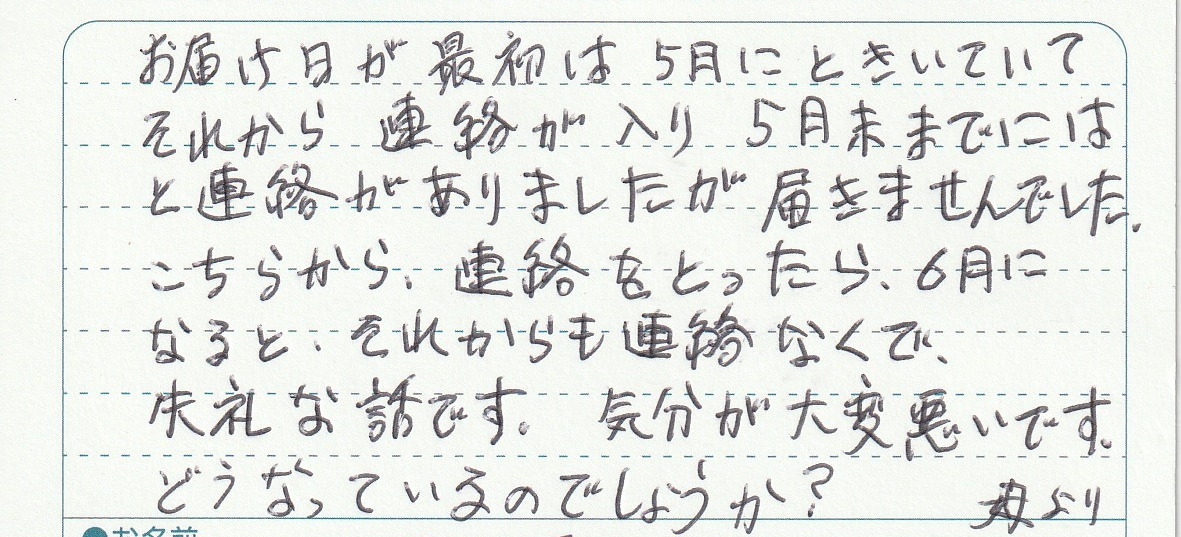 お届け日が最初は5月にときいていて
それから連絡が入り5月末までには
と連絡がありましたが届きませんでした.
こちらから、連絡をとったら、6月に
なると、それからも連絡なくて、
失礼な話です。気分が大変悪いです。
どうなっているのでしょうか?母より
●お名前